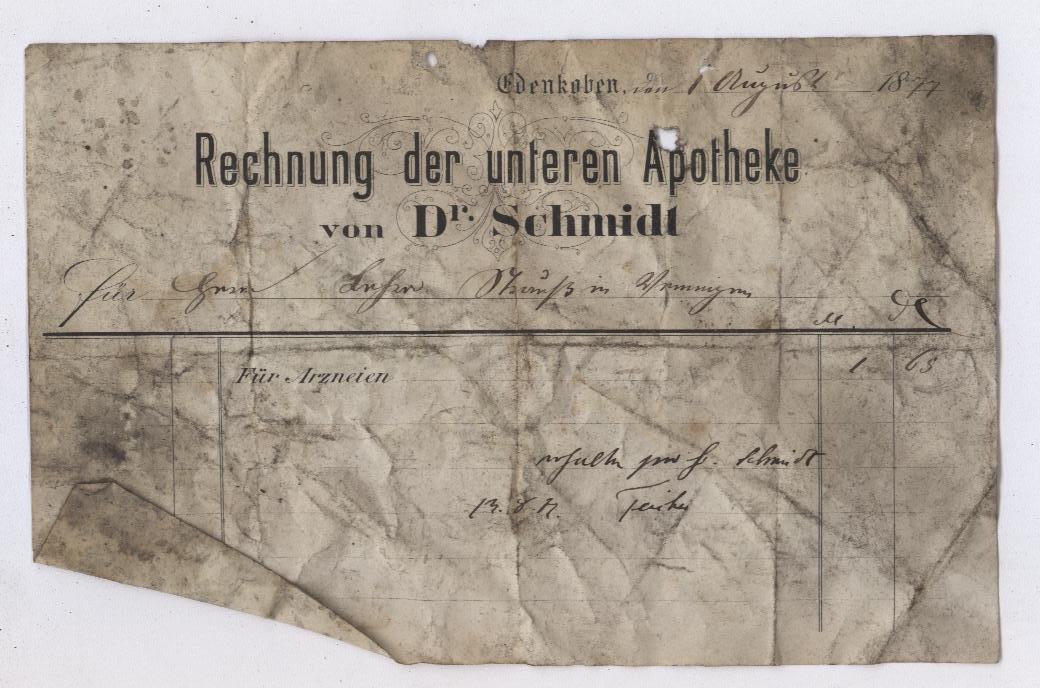 Edenkoben, den 1 August 1877
Rechnung der unteren Apotheke
von Dr. Schmidt
Für Herrn Lehrer Strauß in Venningen
M. Pf
Für Arzneien 1 63
erhalten pro H. Schmidt
13. 8. 77.